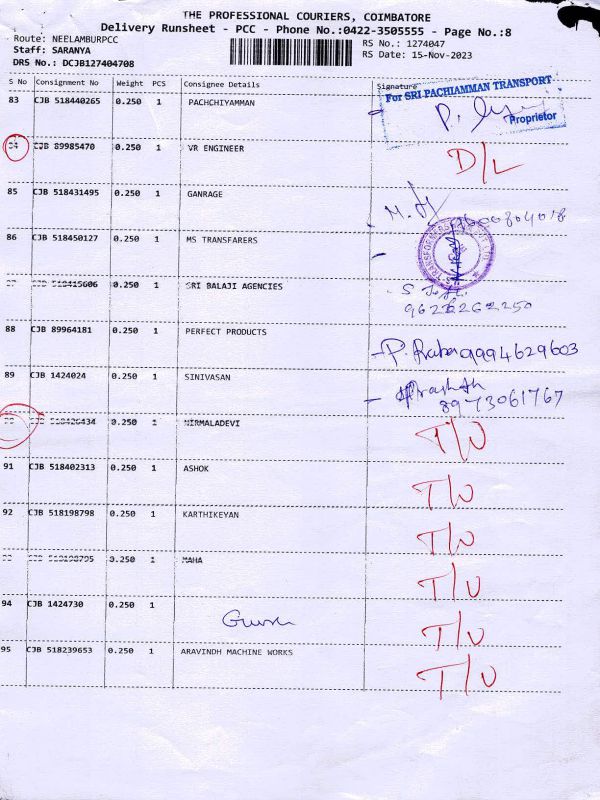 THE PROFESSIONAL COURIERS, COIMBATORE
Delivery Runsheet - PCC - Phone No.:0422-3505555 - Page No.:8
Route: NEELAMBURPCC
RS No.: 1274047
Staff: SARANYA
RS Date: 15-Nov-2023
DRS No.: DCJB127404708
S No Consignment No Weight PCS Consignee Details Signature
For SRI PACHIAMMAN TRANSPORT
83 CJB 518440265 0.250 1 PACHCHIYAMMAN
Proprietor
84 CJB 89985470 0.250 1 VR ENGINEER D/L
85 CJB 518431495 0.250 1 GANRAGE
9600804018
86 CJB 518450127 0.250 1 MS TRANSFARERS
CJB 518415606 0.250 1 SRI BALAJI AGENCIES
9626262250
88 CJB 89964181 0.250 1 PERFECT PRODUCTS 9994629603
89 CJB 1424024 0.250 1 SINIVASAN Prashath
8973061767
CJB 518426434 0.250 1 NIRMALADEVI T/U
91 CJB 518402313 0.250 1 ASHOK T/U
92 CJB 518198798 0.250 1 KARTHIKEYAN T/U
CJB 518198795 0.250 1 MAHA T/U
94 CJB 1424730 0.250 1 T/U
95 CJB 518239653 0.250 1 ARAVINDH MACHINE WORKS T/U